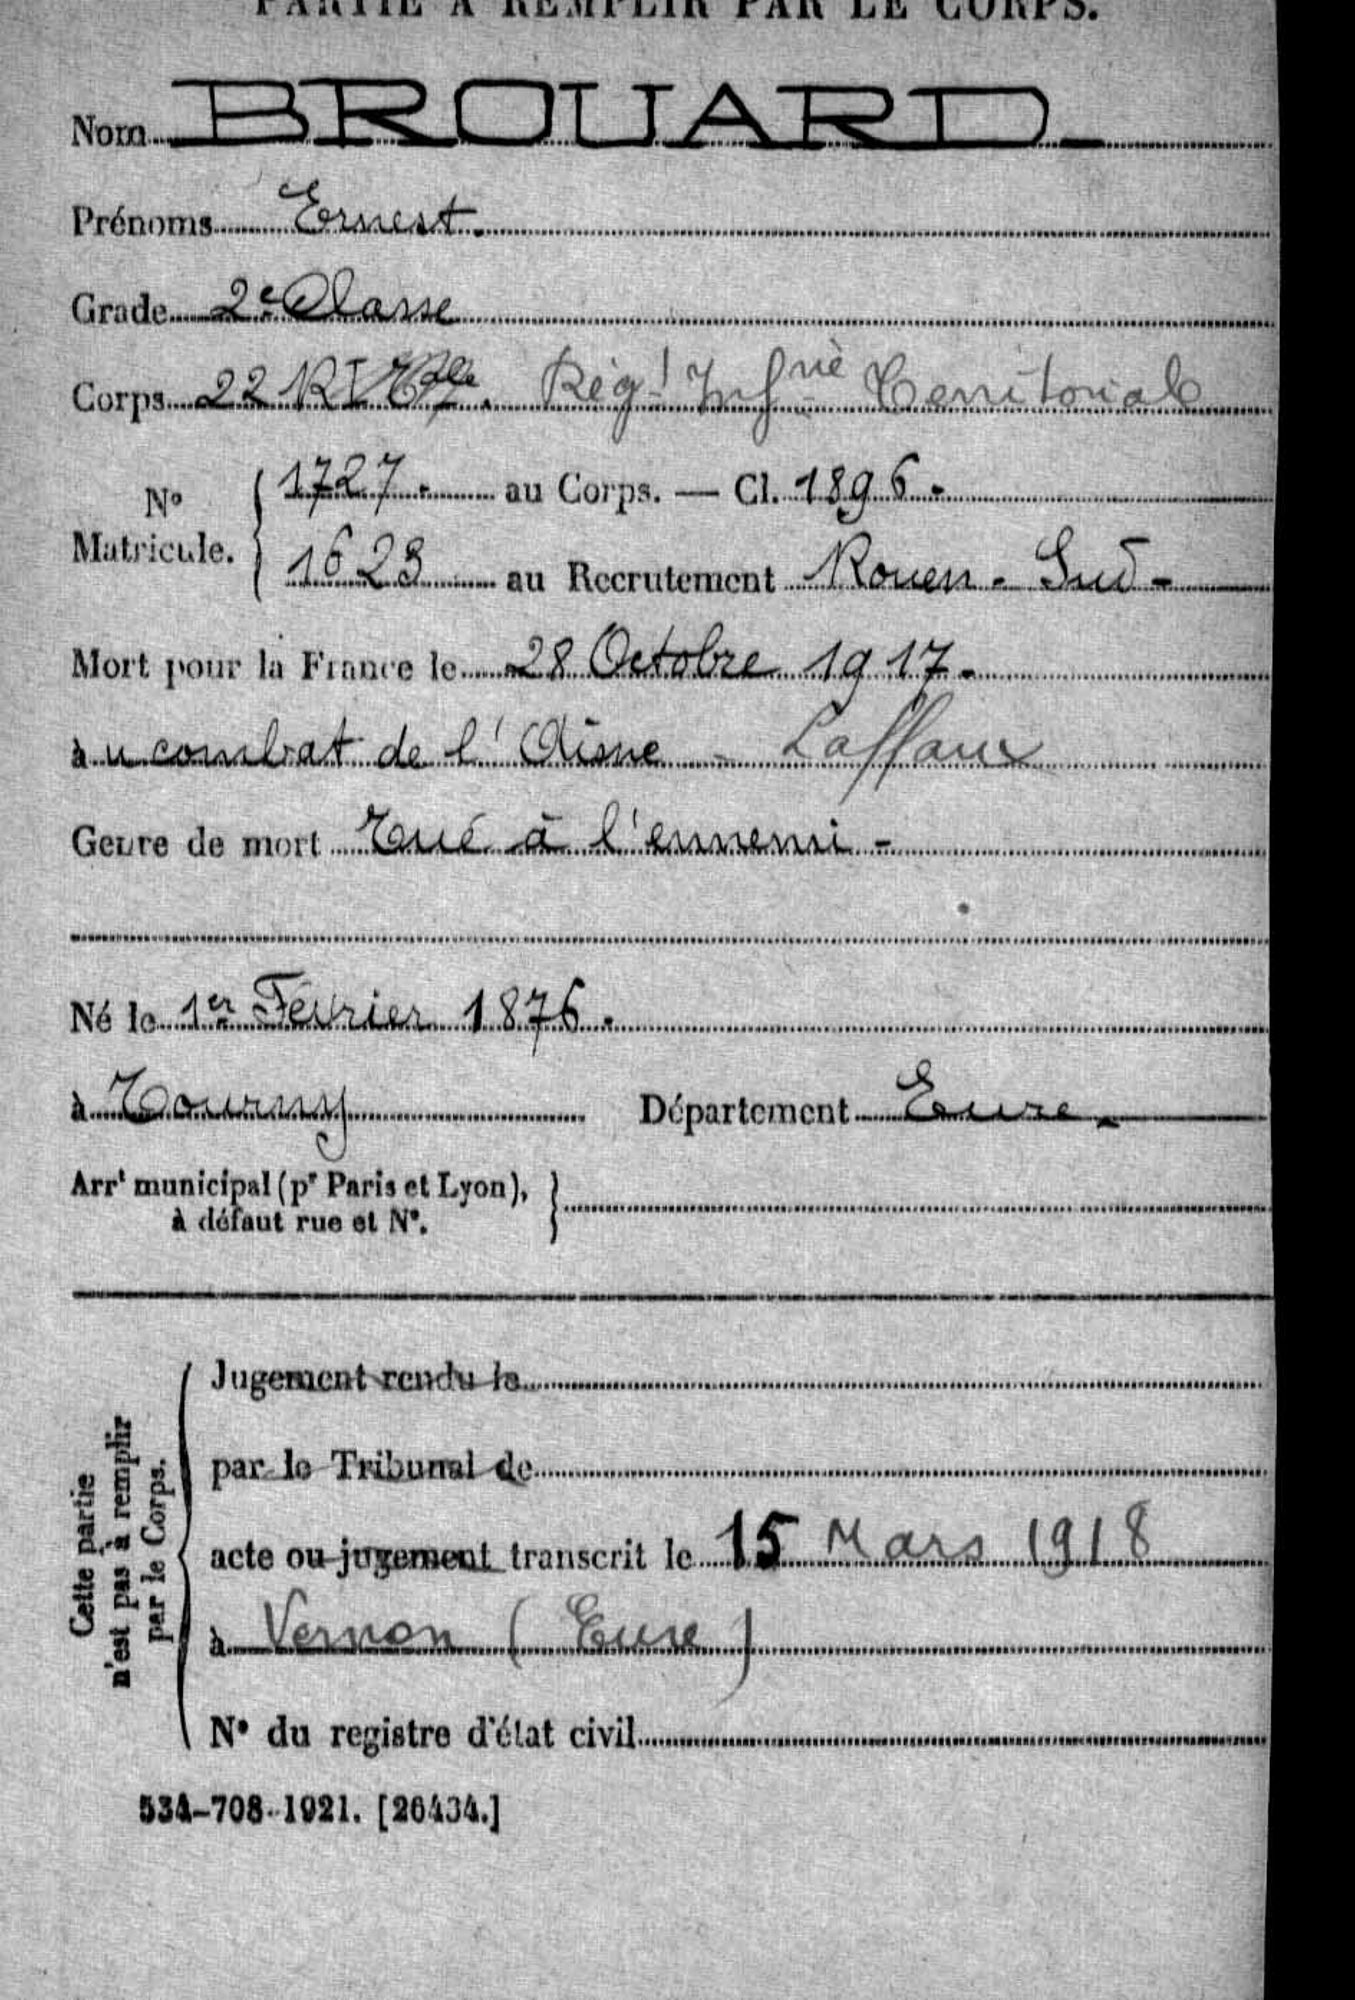 PARTIE À REMPLIR PAR LE CORPS.
Nom BROUARD.
Prénoms Ernest.
Grade 2e Classe
Corps 22 RI Tale. Régt Infrie Territorial
No Matricule. 1727. au Corps. — Cl. 1896.
1623 au Recrutement Rouen - Sud -
Mort pour la France le 28 Octobre 1917.
au combat de l'Aisne - Laffaux
Genre de mort Tué à l'ennemi -
Né le 1er Février 1876.
à Tourny Département Eure.
Arrt municipal (pr Paris et Lyon),
à défaut rue et N°.
Cette partie n'est pas à remplir par le Corps.
Jugement rendu le
par le Tribunal de
acte ou jugement transcrit le 15 Mars 1918
à Vernon (Eure)
N° du registre d'état civil
534-708-1921. [26434.]